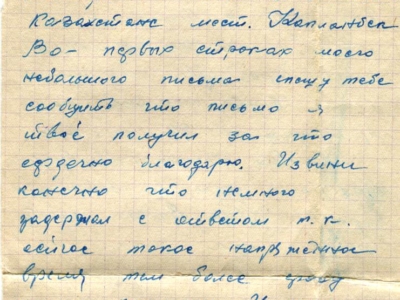 Казахстанс мест. Капланбек
Во-первых строках моего
небольшого письма спешу тебе
сообщить что письмо я
твоё получил за что
сердечно благодарю. Извини
конечно что немного
задержал с ответом т.к.
сейчас такое напряжённое
время тем более